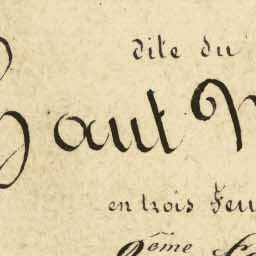 dite du
haut
en trois
2ème